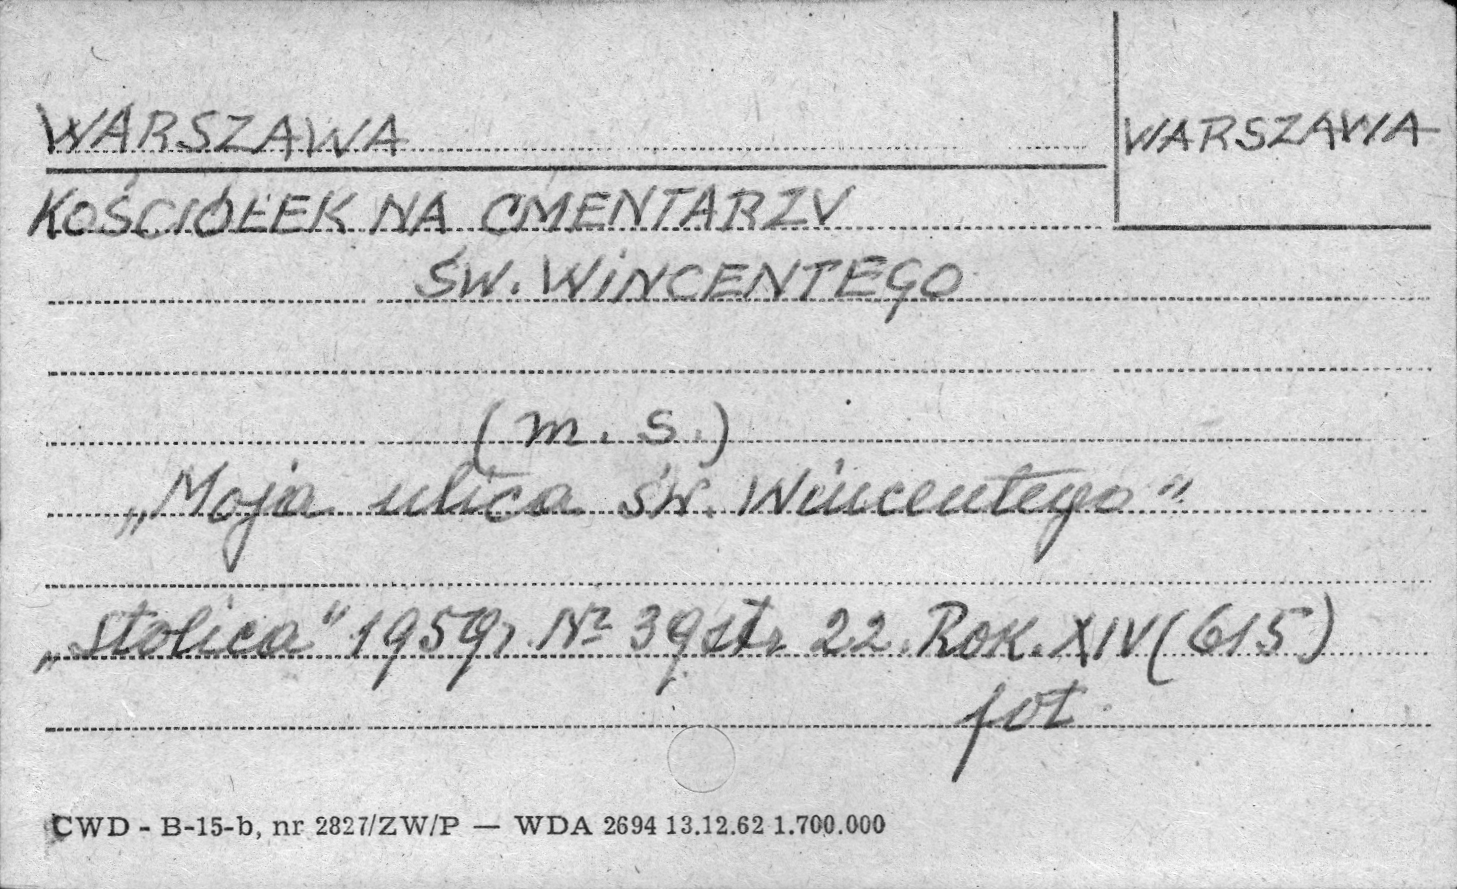 WARSZAWA
WARSZAWA
KOŚCIÓŁEK NA CMENTARZU
ŚW. WINCENTEGO
(m. s.)
„Moja ulica św. Wincentego"
„Stolica" 1959r. Nr 39 str. 22. Rok. XIV (615)
fot.
CWD - B-15-b, nr 2827/ZW/P — WDA 2694 13.12.62 1.700.000